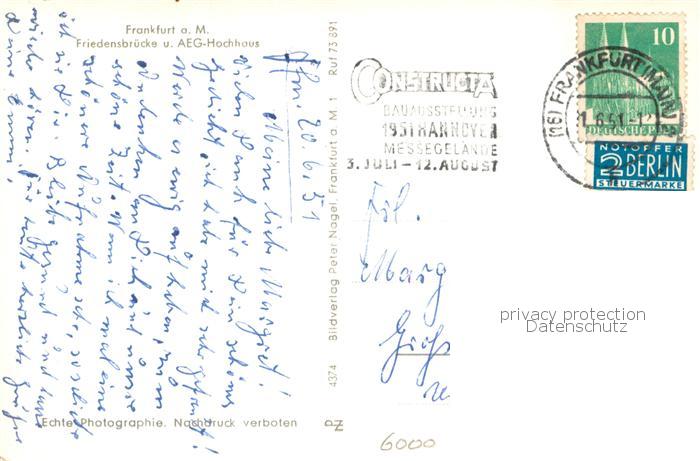 Frankfurt a. M.
Friedensbrücke u. AEG-Hochhaus
Ffm. 20.6.51
Meine liebe Margret!
Vielen Dank für Dein schönes
Gedicht, ich habe mich sehr gefreut!
Werde es ewig aufheben, zum
Andenken an Dich und unsere
schöne Zeit. Wenn ich mal eine
schöne Aufnahme
ich sie Dir. Bleibe gesund und
wieder hören. Für heute herzliche Grüße
Deine
Echte Photographie. Nachdruck verboten
4374 Bildverlag Peter Nagel, Frankfurt a. M. 1 Ruf 73 891
CONSTRUCTA
BAUAUSSTELLUNG
1951 HANNOVER
MESSEGELÄNDE
3. JULI – 12. AUGUST
(16) FRANKFURT (MAIN)
1.6.51.-12
10
DEUTSCHE POST
NOTOPFER
2 BERLIN
STEUERMARKE
Frl.
Marg
privacy protection
Datenschutz
6000